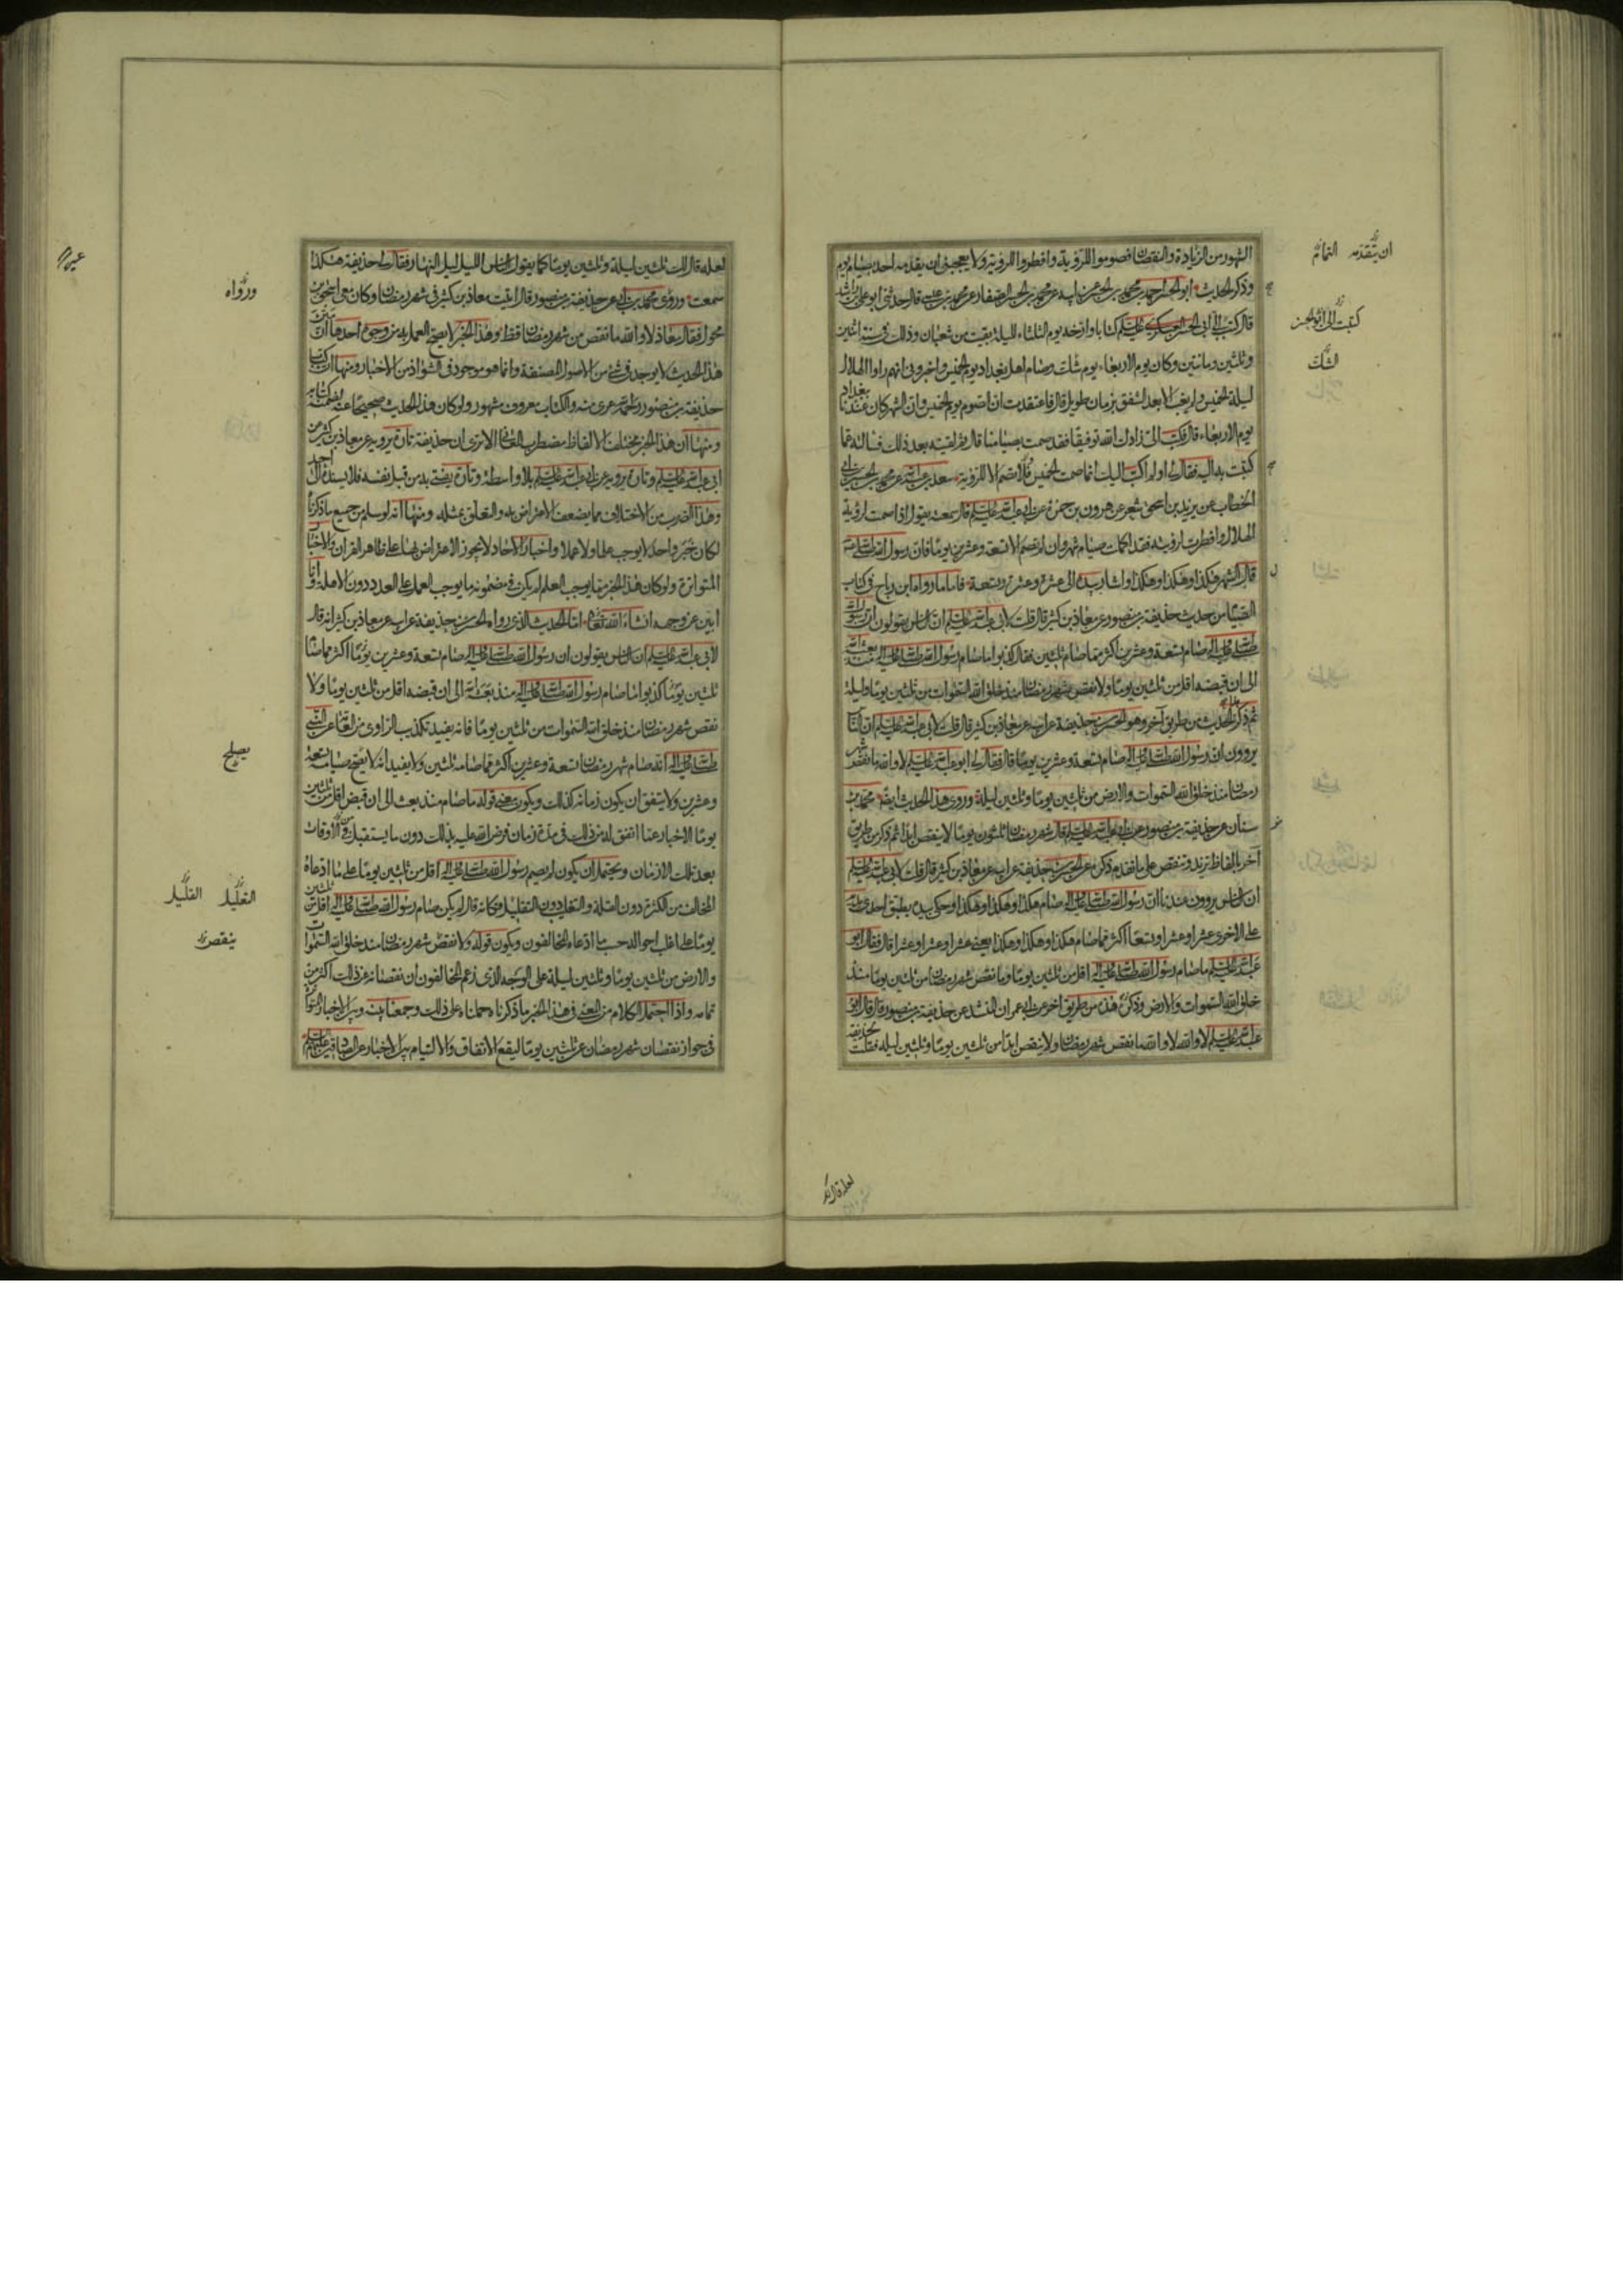 الشهور من الزيادة والنقصان فصوموا للرؤية وافطروا للرؤية ولا يعجبنى ان يتقدمه احد بصيام يوم
وذكر الحديث ابو الحسن احمد بن محمد بن الحسن عن ابيه عن محمد بن الحسن الصفار عن محمد بن عيسى قال حدثنى ابو على بن راشد
قال كتب الى ابى الحسن العسكرى عليه السلم كتابا وارخه يوم الثلثاء لليلة بقيت من شعبان وذلك فى سنة اثنين
وثلثين ومائتين وكان يوم الاربعاء يوم شك وصام اهل بغداد يوم الخميس واخبرونى انهم راوا الهلال
ليلة الخميس ولم يغب الا بعد الشفق بزمان طويل قال فاعتقدت ان الصوم يوم الخميس وان الشهر كان عندنا ببغداد
يوم الاربعاء قال فكتب الى زادك الله توفيقا فقد صمت بصيامنا قال ثم لقيته بعد ذلك فسالته عما
كتبت به اليه فقال لى اولم اكتب اليك انما صمت الخميس فلا تصم الا للرؤية سعد بن عبد الله عن محمد بن الحسين بن ابى
الخطاب عن يزيد بن اسحق شعر عن هرون بن حمزة عن ابى عبد الله عليه السلم قال سمعته يقول اذا صمت لرؤية
الهلال وافطرت لرؤيته فقد اكملت صيام شهر وان لم تصم الا تسعة وعشرين يوما فان رسول الله صلى الله عليه وآله
قال الشهر هكذا وهكذا وهكذا واشار بيده الى عشرة وعشرة وتسعة فاما ما رواه ابن رباح فى كتاب
الصيام من حديث حذيفة بن منصور عن معاذ بن كثير قال قلت لابى عبد الله عليه السلم ان الناس يقولون ان رسول الله
صلى الله عليه وآله صام تسعة وعشرين اكثر مما صام ثلثين فقال كذبوا ما صام رسول الله صلى الله عليه وآله منذ بعثه الله
الى ان قبضه اقل من ثلثين يوما ولا نقص شهر رمضان منذ خلق الله السموات من ثلثين يوما وليلة
ثم ذكر الحديث من طريق آخر وهو الحسن بن حذيفة عن ابيه عن معاذ بن كثير قال قلت لابى عبد الله عليه السلم ان الناس
يروون ان رسول الله صلى الله عليه وآله صام تسعة وعشرين يوما قال فقال لى ابو عبد الله عليه السلم لا والله ما نقص شهر
رمضان منذ خلق الله السموات والارض من ثلثين يوما وثلثين ليلة وروى هذا الحديث ايضا محمد بن
سنان عن حذيفة بن منصور عن ابى عبد الله عليه السلم قال شهر رمضان ثلثون يوما لا ينقص ابدا ثم ذكره من طريق
آخر بالفاظ تزيد وتنقص على ما تقدم ذكره عن الحسن بن حذيفة عن ابيه عن معاذ بن كثير قال قلت لابى عبد الله عليه السلم
ان الناس يروون عندنا ان رسول الله صلى الله عليه وآله صام هكذا وهكذا وهكذا وحكى بيده يطبق احدى يديه
على الاخرى عشرا وعشرا وتسعا اكثر مما صام هكذا وهكذا وهكذا يعنى عشرا وعشرا وعشرا قال فقال ابو
عبد الله عليه السلم ما صام رسول الله صلى الله عليه وآله اقل من ثلثين يوما وما نقص شهر رمضان من ثلثين يوما منذ
خلق الله السموات والارض وذكر هذا من طريق اخر عن ابى عمران المنشد عن حذيفة بن منصور قال قال ابو
عبد الله عليه السلم لا والله لا والله ما نقص شهر رمضان ولا ينقص ابدا من ثلثين يوما وثلثين ليلة فقلت لحذيفة
ان يتقدمه
كتبت الى ابو الحسن
الشك
لعله قال لك
لعله قال لك ثلثين ليلة وثلثين يوما كما يقول الناس الليل ليل النهار فقال لى حذيفة هكذا
سمعت وروى محمد بن ابى عن حذيفة بن منصور قال اتيت معاذ بن كثير فى شهر رمضان وكان معى اسحق بن
محول فقال معاذ لا والله ما نقص من شهر رمضان قط وهذا الخبر لا يصح العمل به من وجوه احدها ان متن
هذا الحديث لا يوجد فى شئ من الاصول المصنفة وانما هو موجود فى الشواذ من الاخبار ومنها ان كتاب
حذيفة بن منصور رحمه الله عرى منه والكتاب معروف مشهور ولو كان هذا الحديث صحيحا عنه لضمنه كتابه
ومنها ان هذا الخبر مختلف الالفاظ مضطرب المعانى الا ترى ان حذيفة تارة يرويه عن معاذ بن كثير عن
ابى عبد الله عليه السلم وتارة يرويه عن ابى عبد الله عليه السلم بلا واسطة وتارة يفتى به من قبل نفسه فلا يسنده الى احد
وهذا الضرب من الاختلاف مما يضعف الاعتراض به والتعلق بمثله ومنها انه لو سلم من جميع ما ذكرناه
لكان خبر واحد لا يوجب علما ولا عملا واخبار الاحاد لا يجوز الاعتراض بها على ظاهر القران والاخبار
المتواترة ولو كان هذا الخبر مما يوجب العلم لم يكن فى مضمونه ما يوجب العمل على العدد دون الاهلة وانا
ابين عن وجهه ان شاء الله تعالى اما الحديث الذى رواه الحسن بن حذيفة عن ابيه عن معاذ بن كثير انه قال
لابى عبد الله عليه السلم ان الناس يقولون ان رسول الله صلى الله عليه وآله صام تسعة وعشرين يوما اكثر مما صام
ثلثين يوما كذبوا ما صام رسول الله صلى الله عليه وآله منذ بعثه الله الى ان قبضه اقل من ثلثين يوما ولا
نقص شهر رمضان منذ خلق الله السموات من ثلثين يوما فانه يفيد تكذيب الراوى من العامة عن النبى
صلى الله عليه وآله انه صام شهر رمضان تسعة وعشرين اكثر مما صامه ثلثين ولا يفيد انه لا يصح صيامه تسعة
وعشرين ولا يتفق ان يكون زمانه كذلك ويكون معنى قوله ما صام منذ بعث الى ان قبض اقل من ثلثين
يوما الاخبار عما اتفق له من ذلك فى مدة زمان فرض الله عليه ذلك دون ما يستقبل من الاوقات
بعد تلك الازمان ويحتمل ان يكون لم يصم رسول الله صلى الله عليه وآله اقل من ثلثين يوما على ما ادعاه
المخالف من الكثرة دون القلة والتغليب دون التقليل فكانه قال لم يكن صيام رسول الله صلى الله عليه وآله اقل من ثلثين
يوما على اغلب احواله حسب ما ادعاه المخالفون ويكون قوله ولا نقص شهر رمضان منذ خلق الله السموات
والارض من ثلثين يوما وثلثين ليلة على الوجه الذى زعم المخالفون ان نقصانه عن ذلك اكثر من
تمامه واذا احتمل الكلام من المعنى فى هذا الخبر ما ذكرناه حملناه على ذلك وجمعنا بينه وبين الاخبار المتواترة
فى جواز نقصان شهر رمضان عن ثلثين يوما ليقع الاتفاق والالتيام بين الاخبار عن الصادقين عليهم السلم
ورواه
يصلح
التقليل القليل
ينقص